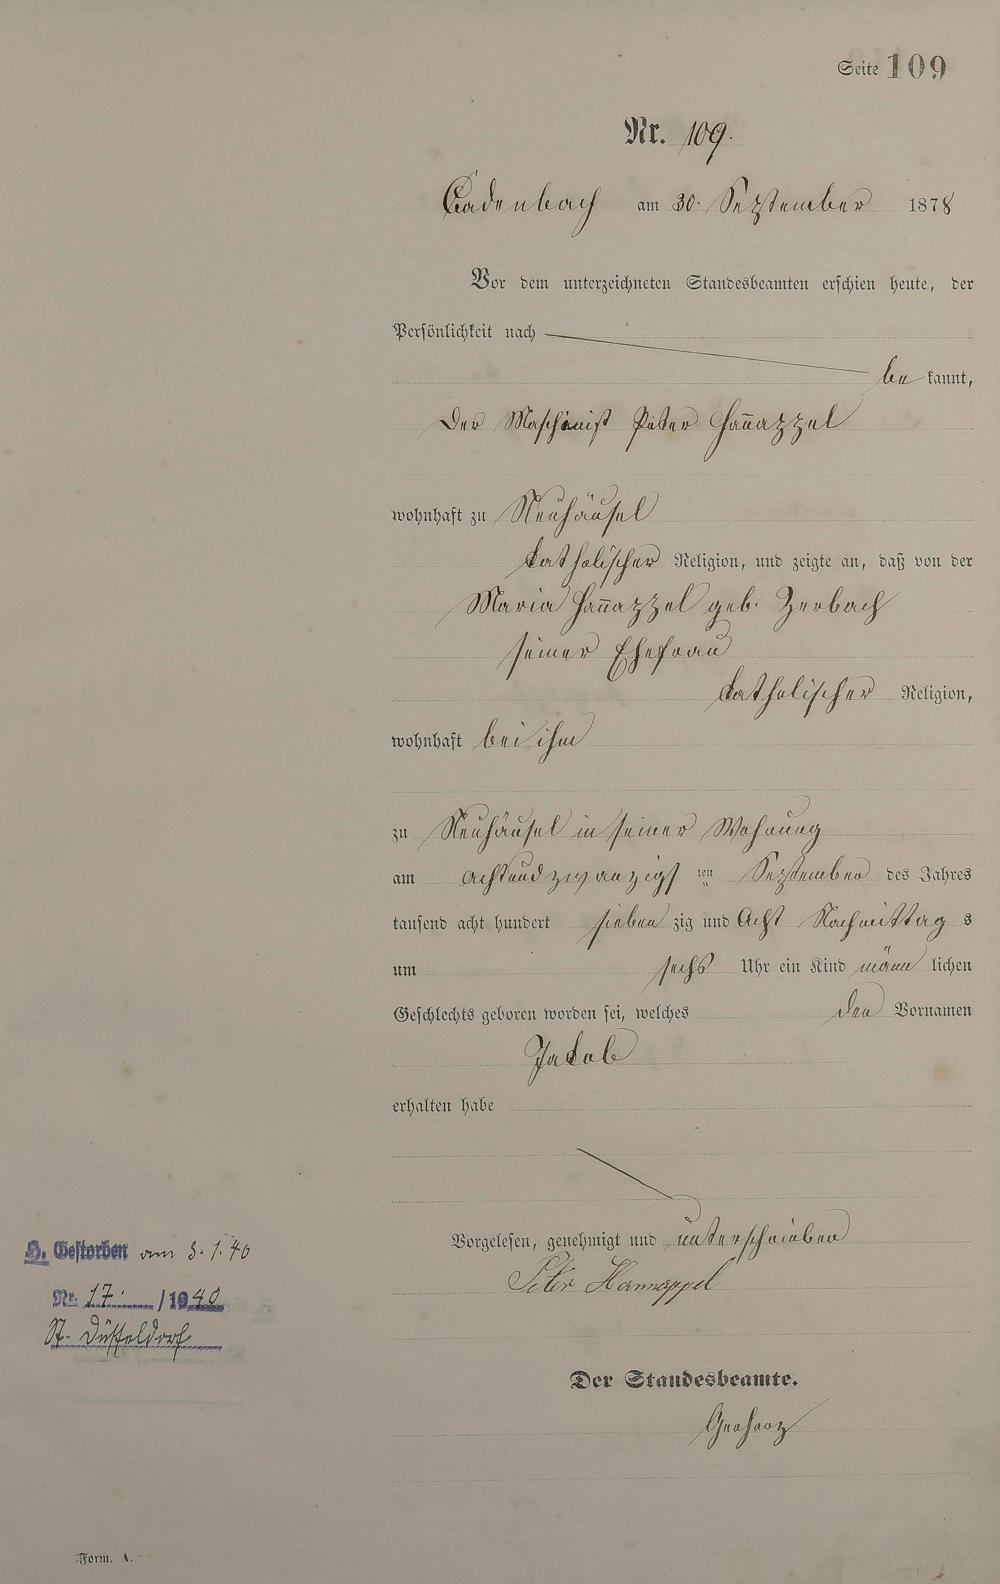 Seite 109
Nr. 109.
Cadenbach am 30. September 1878
Vor dem unterzeichneten Standesbeamten erschien heute, der
Persönlichkeit nach
be kannt,
Der Maschinist Peter Han̄appel
wohnhaft zu Neuhäusel
katholischer Religion, und zeigte an, daß von der
Maria Han̄appel geb. Zerbach
seiner Ehefrau
katholischer Religion,
wohnhaft bei ihm
zu Neuhäusel in seiner Wohnung
am achtundzwanzigsten September des Jahres
tausend acht hundert sieben zig und Acht Nachmittag s
um sechs Uhr ein Kind männ lichen
Geschlechts geboren worden sei, welches den Vornamen
Jakob
erhalten habe
Vorgelesen, genehmigt und unterschrieben
Peter Hannappel
Der Standesbeamte.
Gerharz
H. Gestorben am 3.1.40
Nr. 17. /1940
St. Düsseldorf
Form. A.